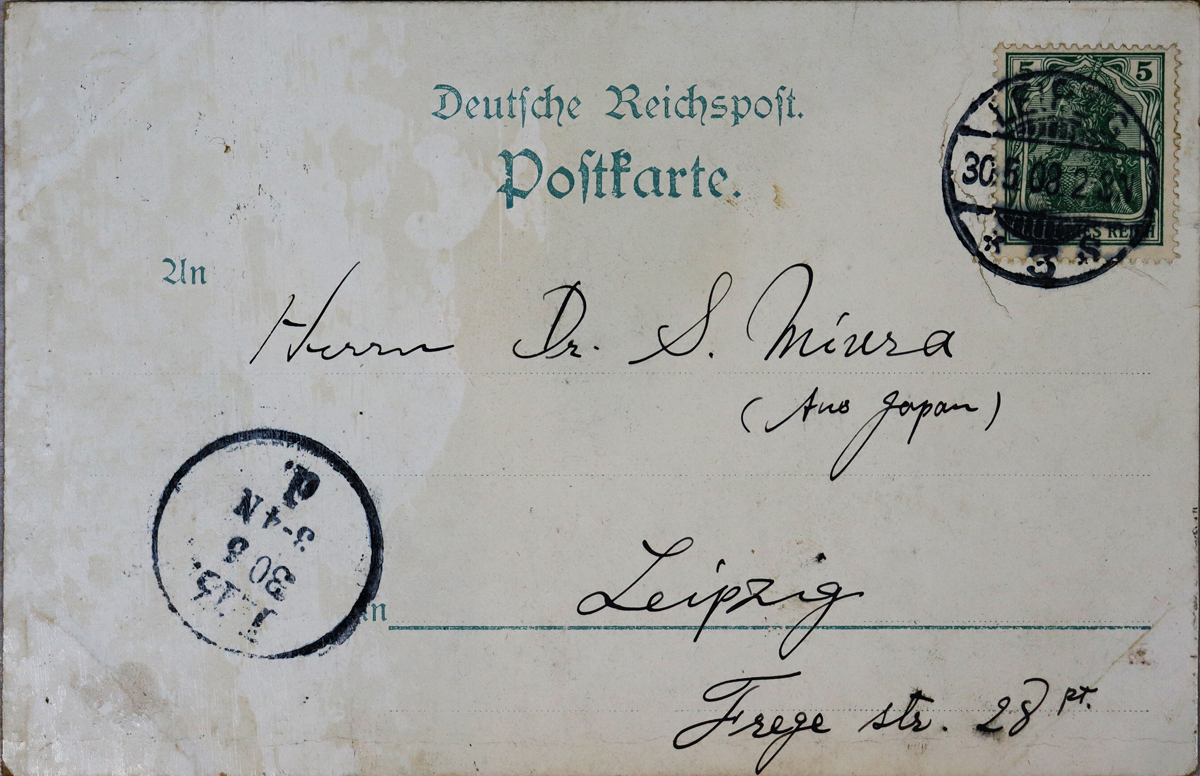 5 5
Deutsche Reichspost.
Postkarte.
LEIPZIG
30.5.08
* 3 S *
DEUTSCHES REICH
An
Herrn Dr. S. Miura
(Aus Japan)
d.
3-4N
30 5
L. 13.
in
Leipzig
Frege str. 28 pt.